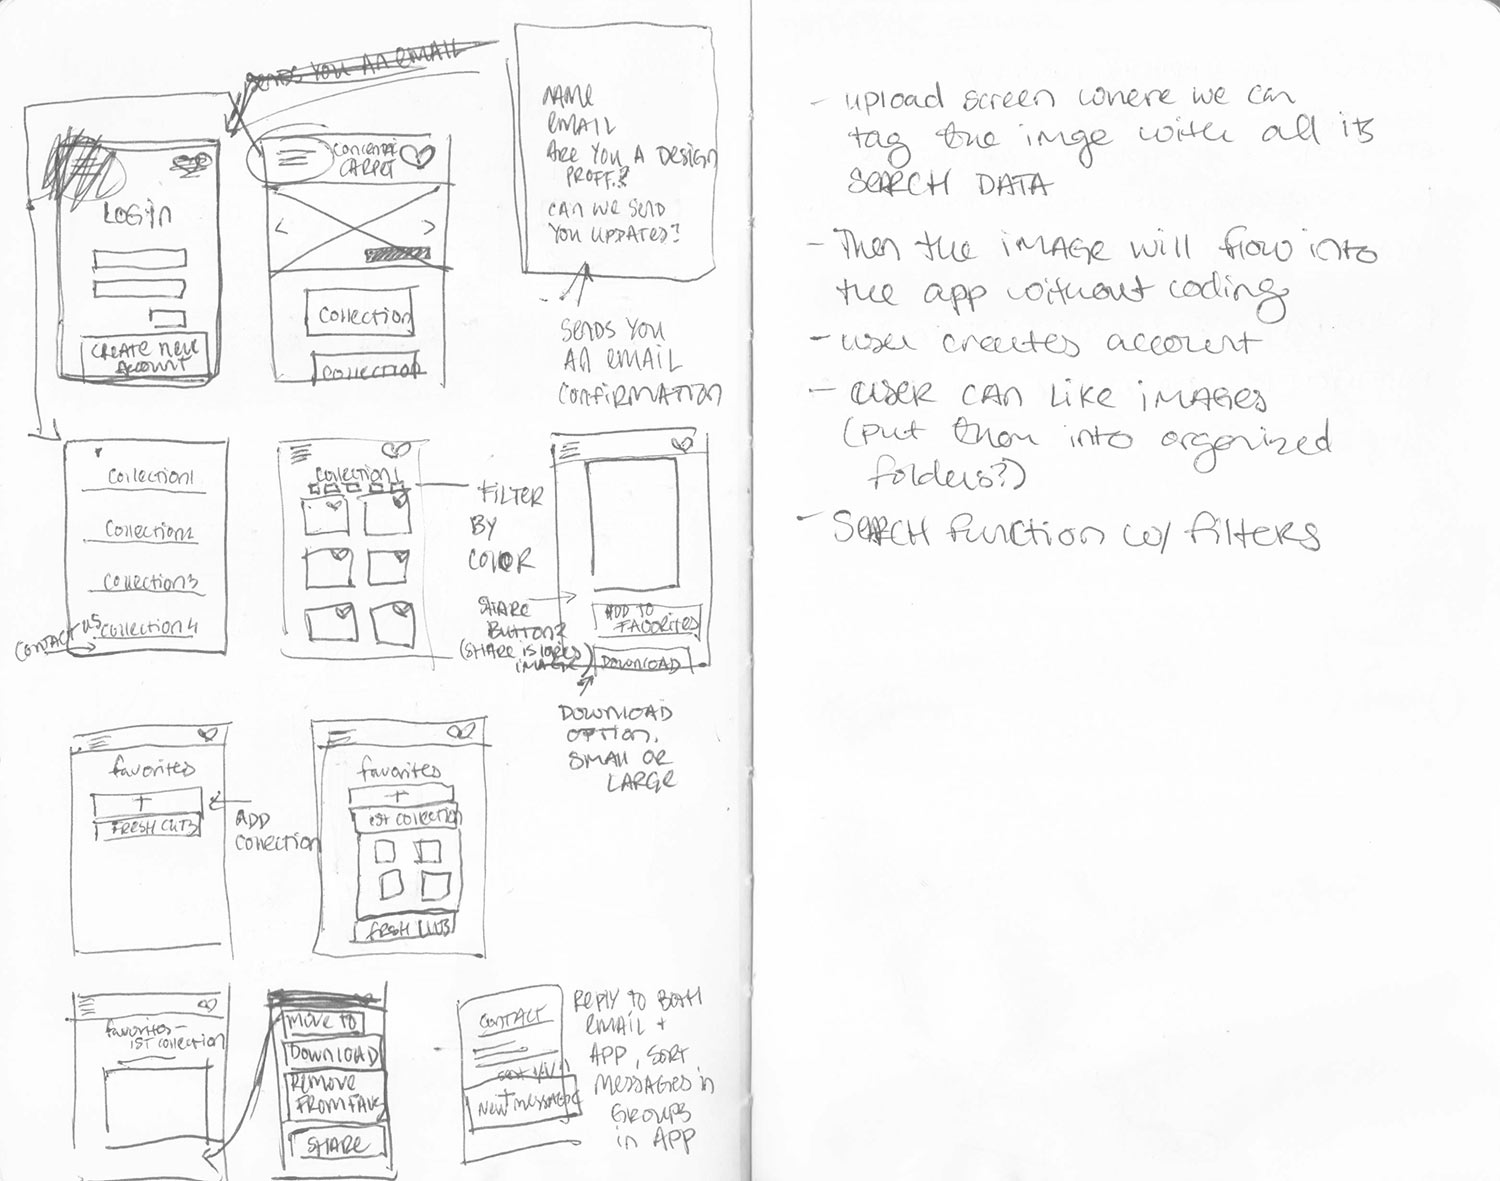 SENDS YOU AN EMAIL
LOGIN
CREATE NEW
ACCOUNT
CARPET
COLLECTION
COLLECTION
NAME
EMAIL
ARE YOU A DESIGN
PROFF.?
CAN WE SEND
YOU UPDATES?
SENDS YOU
AN EMAIL
CONFIRMATION
Collection1
Collection2
Collection3
Collection4
CONTACT US
Collection1
FILTER
BY
COLOR
SHARE
BUTTON?
(SHARE IS
IMAGE)
ADD TO
FAVORITES
DOWNLOAD
DOWNLOAD
OPTION,
SMALL OR
LARGE
favorites
+
FRESH CUTS
ADD
COLLECTION
favorites
+
1ST COLLECTION
FRESH CUTS
favorites -
1ST COLLECTION
MOVE TO
DOWNLOAD
REMOVE
FROM FAVS
SHARE
CONTACT
NEW MESSAGE
REPLY TO BOTH
EMAIL +
APP, SORT
MESSAGES in
GROUPS
in APP
- upload screen where we can
tag the imge with all its
SEARCH DATA
- Then the iMAGE will flow into
the app without coding
- user creates account
- USER CAN LIKE iMAGES
(put them into organized
folders?)
- SEARCH function w/ filters